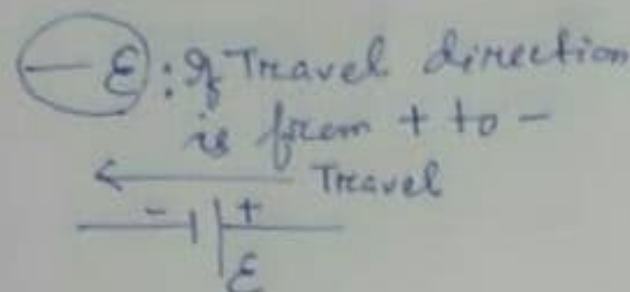 - ε : If Travel direction
is from + to -
Travel
- +
ε